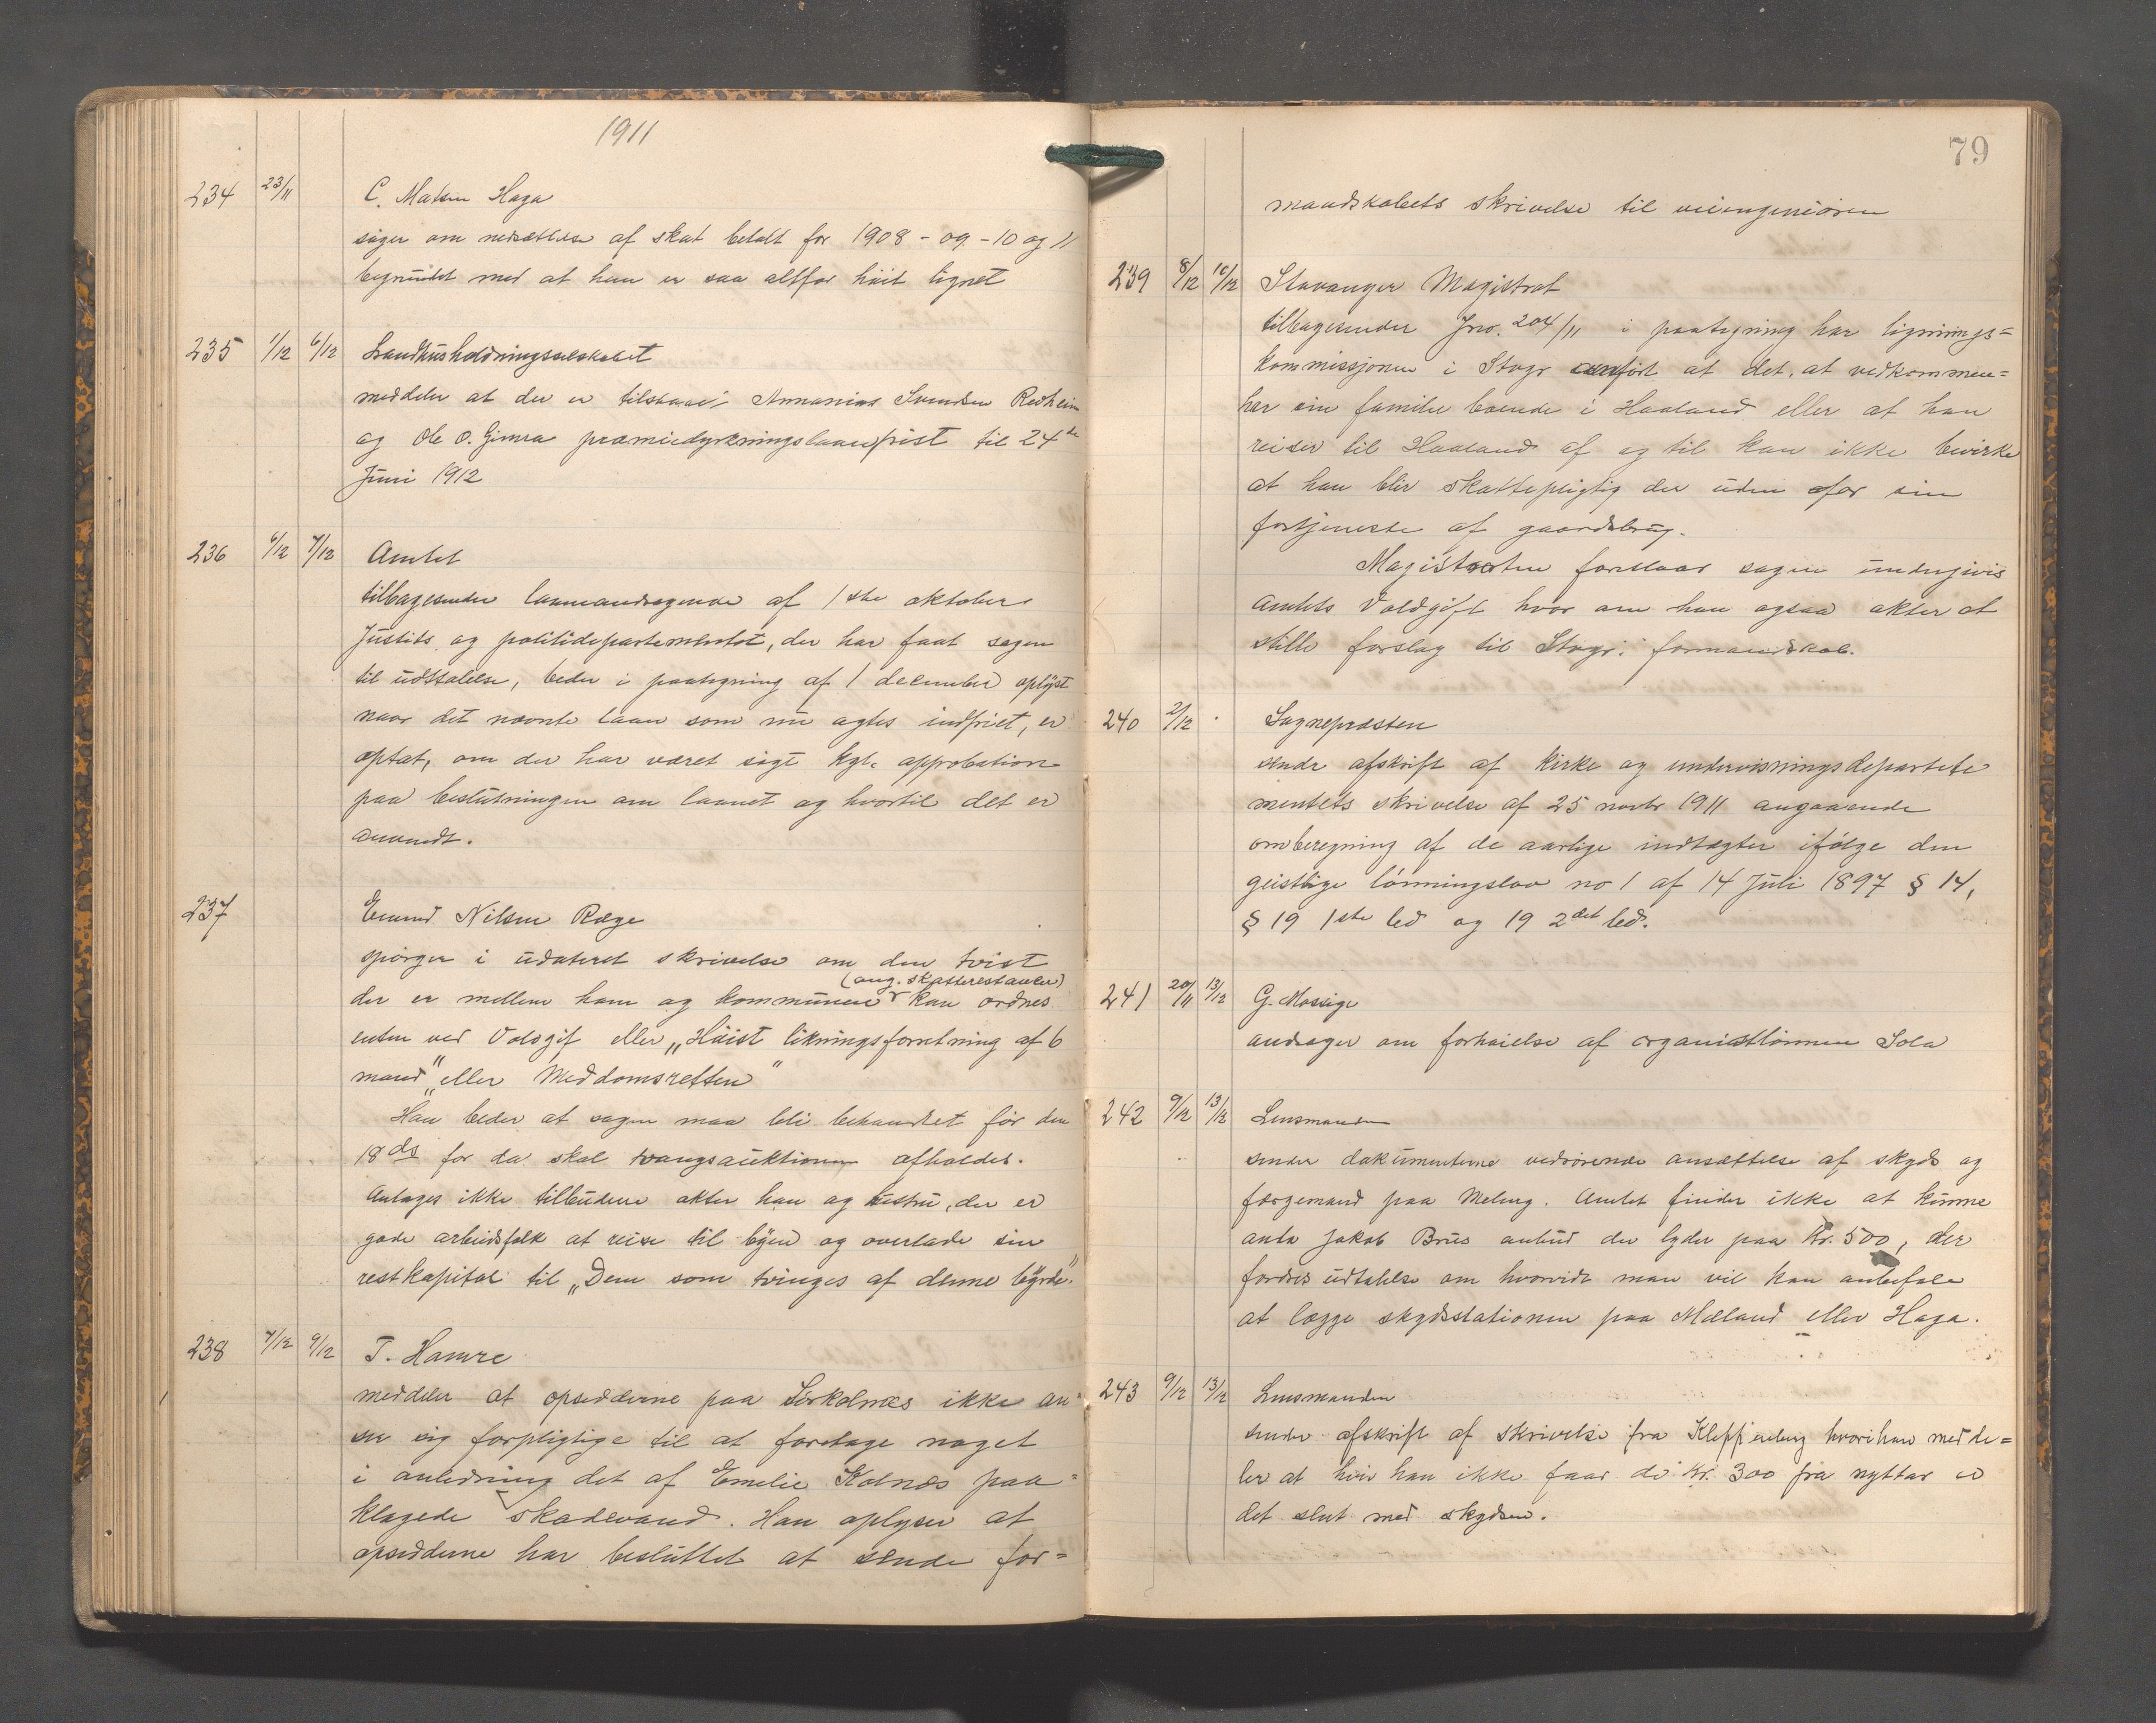 1911
234 23/11 C. Matsen Haga
søger om nedsættelse af skat betalt for 1908-09-10 og 11
begrundet med at han er saa altfor høit lignet
235 1/12 6/12 Landhusholdningsselskabet
meddeler at der er tilstaaet Annanias Svendsen Redheim
og Ole O. Gimra præmiedyrkningslaansfrist til 24de
Juni 1912
236 6/12 7/12 Amtet
tilbagesender laaneandragende af 1ste oktober
Justits og politidepartementet, der har faat sagen
til udttalelse, beder i paategning af 1 december oplyst
naar det nævnte laan som nu agtes indfriet, er
optat, om der har været søgt kgl. approbation
paa beslutningen om laanet og hvortil det er
anvendt.
237 Enund Nilsen Ræge
spørger i udateret skrivelse om den tvist
(ang. skatterestancer)
der er mellem ham og kommunen kan ordnes
enten ved Voldgif eller „Høist likningsforretning af 6
mand" „eller Meddomsretten"
Han beder at sagen maa bli behandlet før den
18ds for da skal tvangsauktionen afholdes.
Antages ikke tilbudene akter han og hustru, der er
gode arbeidsfolk at reise til byen og overlade sin
restkapital til „Dem som tvinges af denne byrde."
238 7/12 9/12 T. Hamre
meddeler at opsidderne paa Sørkolnes ikke an=
ser sig forpligtige til at foretage noget
i anledning det af Emelie Kolnæs paa=
klagede skadevand. Han oplyser at
opsidderne har besluttet at sende for=
79
mandskabets skrivelse til veiingeniøren
239 8/12 10/12 Stavanger Magistrat
tilbagesender Jno. 204/11 i paategning har lignings=
kommissjonen i Stvgr anført at det, at vedkommen=
har sin familie boende i Haaland eller at han
reiser til Haaland af og til kan ikke bevirke
at han blir skattepligtig der uden for sin
fortjeneste af gaardsbrug.
Magistraten foreslaar sagen undergives
Amtets Voldgift hvor om han ogsaa akter at
stille forslag til Stvgr. formandskab.
240 2/12 Sognepræsten
sender afskrift af Kirke og undervisningsdeparte
mentets skrivelse af 25 novbr 1911 angaaende
omberegning af de aarlige indtægter ifølge den
geistlige lønningslov no 1 af 14 Juli 1897 § 14,
§ 19 1ste led og 19 2det led.
241 20/11 13/12 G. Mossige
andrager om forhøielse af organistlønnen Sola
242 9/12 13/12 Lensmanden
sender dokumenterne vedrørende ansættelse af skyds og
færgemand paa Meling. Amtet finder ikke at kunne
anta Jakob Brus anbud der lyder paa Kr. 500, der
fordres udtalelse om hvorvidt man vil kan anbefale
at lægge skydsstationen paa Mæland eller Haga.
243 9/12 13/12 Lensmanden
sender afskrift af skrivelse fra Kleppenberg hvori han medde=
ler at hvis han ikke faar de Kr. 300 fra nyttar er
det slut med skydsen.